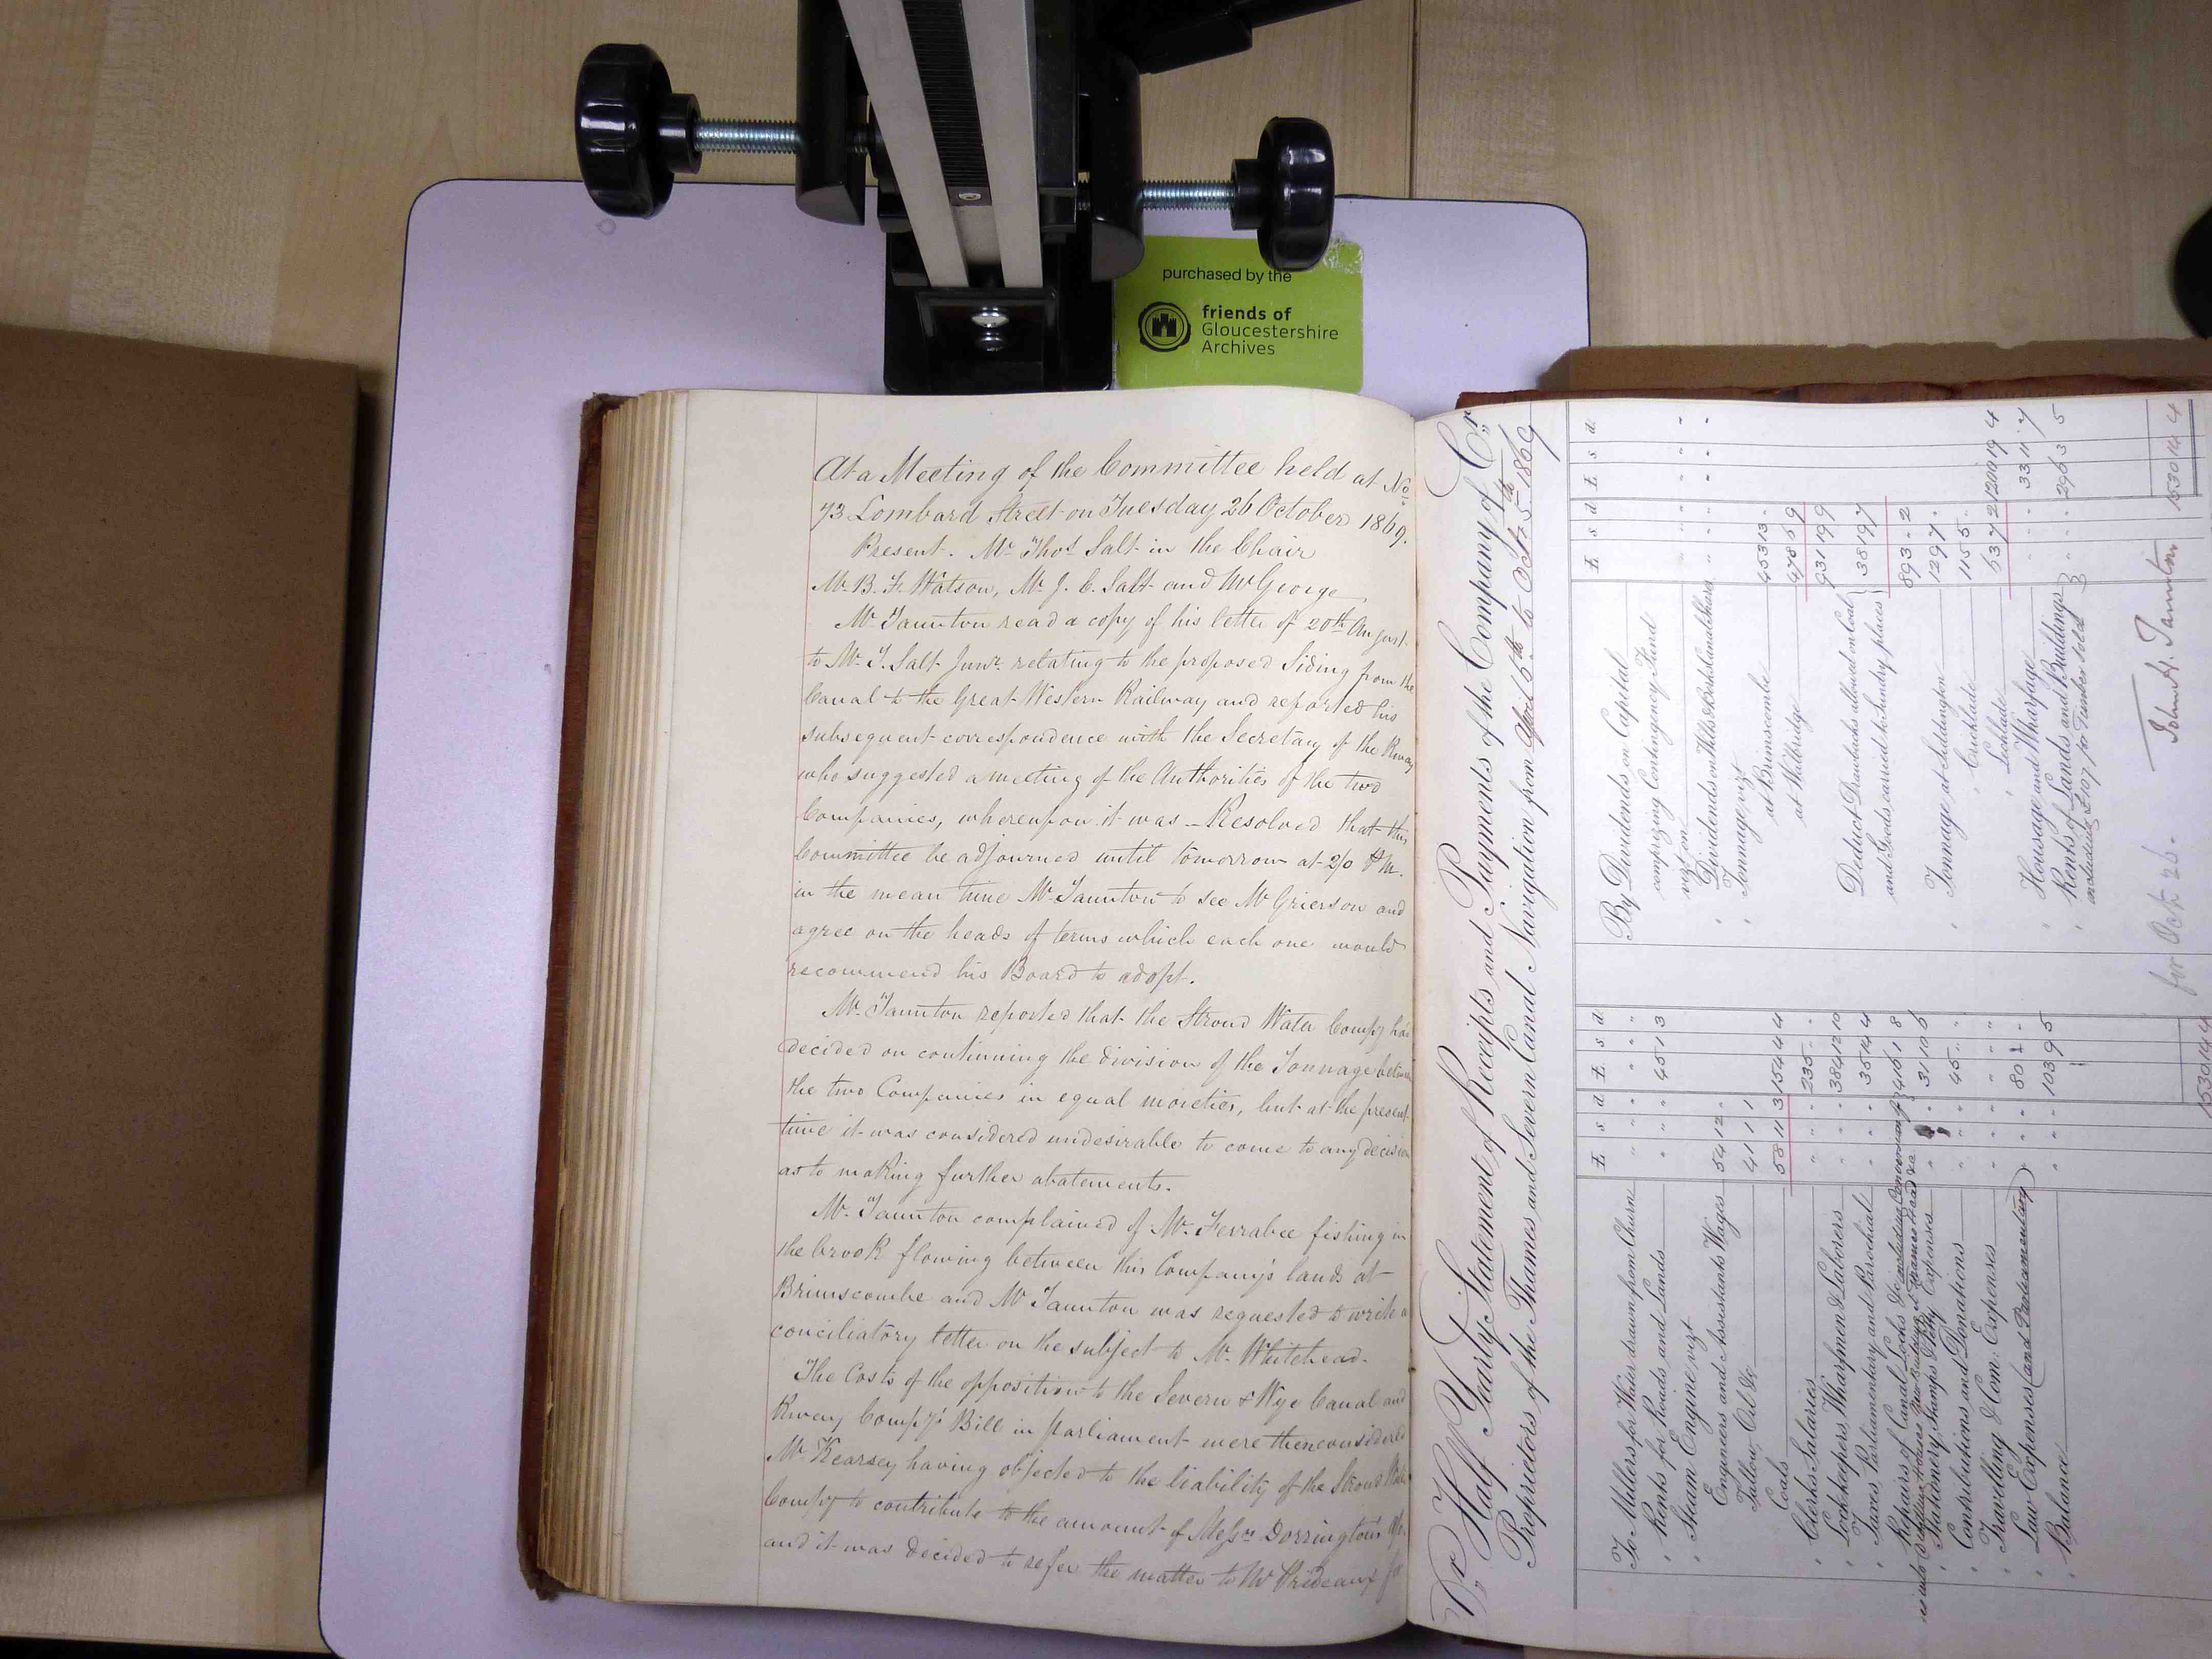 purchased by the
friends of
Gloucestershire
Archives
At a Meeting of the Committee held at No
73 Lombard Street on Tuesday 26 October 1869.
Present. Mr Thos Salt in the Chair
Mr B. F. Watson, Mr J. C. Salt and Mr George
Mr Taunton read a copy of his letter of 20th August
to Mr T. Salt Junr relating to the proposed Siding from the
Canal to the Great Western Railway and reported his
subsequent correspondence with the Secretary of the Rway
who suggested a meeting of the Authorities of the two
Companies, whereupon it was - Resolved that this
Committee be adjourned until tomorrow at P.M.
in the mean time Mr Taunton to see Mr Grierson and
agree on the heads of terms which each one would
recommend his Board to adopt.
Mr Taunton reported that the Stroud Water Compy had
decided on continuing the division of the Tonnage between
the two Companies in equal moieties, but at the present
time it was considered undesirable to come to any decision
as to making further abatements.
Mr Taunton complained of Mr Ferrabee fishing in
the brook flowing between this Company's lands at
Brimscombe and Mr Taunton was requested to write a
conciliatory letter on the subject to Mr Whitehead.
The Costs of the opposition to the Severn & Wye Canal and
Rway Compy's Bill in parliament were then considered
Mr Kearsey having objected to the liability of the Stroud Water
Compy to contribute to the amount of Messrs Dorrington's
and it was decided to refer the matter to Mr Prideaux
Dr Half Yearly Statement of Receipts and Payments of the Company of Cr
Proprietors of the Thames and Severn Canal Navigation from April 5th to Oct 5th 1869
£ s d £ s d
To Millers for Water drawn from Churn " " " " " "
" Rents for Roads and Lands " " 45 13
" Steam Engine, vizt
Engineers and Assistants Wages 54 12 "
Tallow, Oil &c 4 1 1 1
Coals 58 11 3 154 4 4
" Clerks Salaries " " 235 " "
" Lockkeepers Wharfmen & Laborers " " 384 12 10
" Taxes, Parliamentary and Parochial " " 35 14 4
" Repairs of Canal Locks &c including
" Stationery, Stamps & Petty Expenses 31 10 6
" Contributions and Donations " " 45 " "
" Travelling & Com: Expenses " " " " "
" Law Expenses (and Parliamentary) " " 80 1 "
" Balance " " 103 9 5
1530 14 4
£ s d £ s d
By Dividends on Capital
comprizing Contingency Fund
vizt on
" Dividends on Wilts & Berks Canal Shares " " " "
" Tonnage vizt
at Brimscombe 453 13 "
at Wallbridge 478 5 9
931 19 9
Deduct Drawbacks allowed on Coal
and Goods carried to Sundry places 38 19 7
893 " 2
" Tonnage at Siddington 129 7 "
" " Cricklade 115 5 "
" " Lechlade 63 7 2 1200 19 4
" Housage and Wharfage " " 33 11 7
" Rents of Lands and Buildings
including £107 for Timber sold " " 296 3 5
1530 14 4
for Oct 26.
John H. Taunton